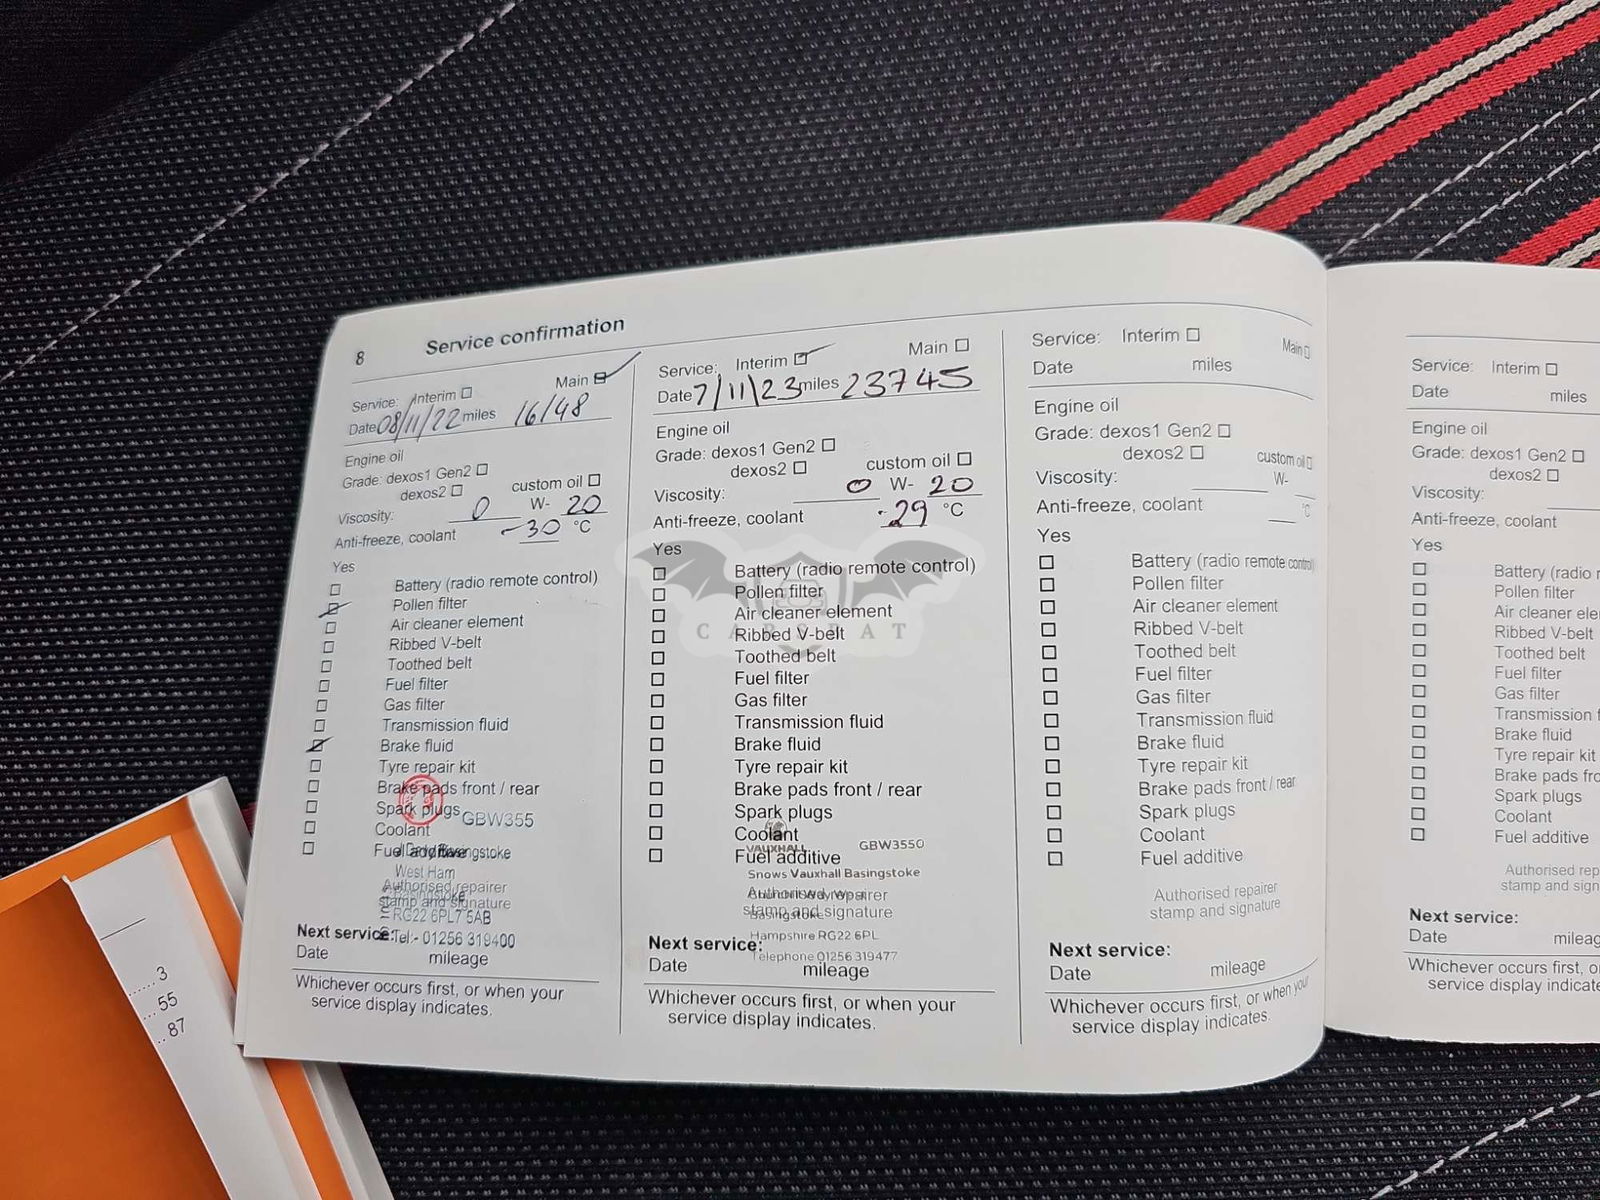 8 Service confirmation
Service: Interim Main
Date 08/11/22 miles 16/48
Engine oil
Grade: dexos1 Gen2
dexos2 custom oil
Viscosity: 0 W- 20
Anti-freeze, coolant -30 °C
Yes
Battery (radio remote control)
Pollen filter
Air cleaner element
Ribbed V-belt
Toothed belt
Fuel filter
Gas filter
Transmission fluid
Brake fluid
Tyre repair kit
Brake pads front / rear
Spark plugs
GBW355
Coolant
Fuel additive
West Ham
Authorised repairer
Basingstoke
stamp and signature
RG22 6PL7 5AB
Tel:- 01256 319400
Next service:
Date mileage
Whichever occurs first, or when your
service display indicates.
Service: Interim Main
Date 7/11/23 miles 23745
Engine oil
Grade: dexos1 Gen2
dexos2 custom oil
Viscosity: 0 W- 20
Anti-freeze, coolant -29 °C
Yes
Battery (radio remote control)
Pollen filter
Air cleaner element
CARSTAT
Ribbed V-belt
Toothed belt
Fuel filter
Gas filter
Transmission fluid
Brake fluid
Tyre repair kit
Brake pads front / rear
Spark plugs
Coolant
VAUXHALL GBW3550
Fuel additive
Snows Vauxhall Basingstoke
Authorised repairer
stamp and signature
Basingstoke
Hampshire RG22 6PL
Telephone 01256 319477
Next service:
Date mileage
Whichever occurs first, or when your
service display indicates.
Service: Interim Main
Date miles
Engine oil
Grade: dexos1 Gen2
dexos2 custom oil
Viscosity: W-
Anti-freeze, coolant °C
Yes
Battery (radio remote control)
Pollen filter
Air cleaner element
Ribbed V-belt
Toothed belt
Fuel filter
Gas filter
Transmission fluid
Brake fluid
Tyre repair kit
Brake pads front / rear
Spark plugs
Coolant
Fuel additive
Authorised repairer
stamp and signature
Next service:
Date mileage
Whichever occurs first, or when your
service display indicates.
Service: Interim
Date miles
Engine oil
Grade: dexos1 Gen2
dexos2
Viscosity:
Anti-freeze, coolant
Yes
Battery (radio r
Pollen filter
Air cleaner ele
Ribbed V-belt
Toothed belt
Fuel filter
Gas filter
Transmission f
Brake fluid
Tyre repair kit
Brake pads fro
Spark plugs
Coolant
Fuel additive
Authorised rep
stamp and sign
Next service:
Date mileag
Whichever occurs first, o
service display indicate
3
55
87